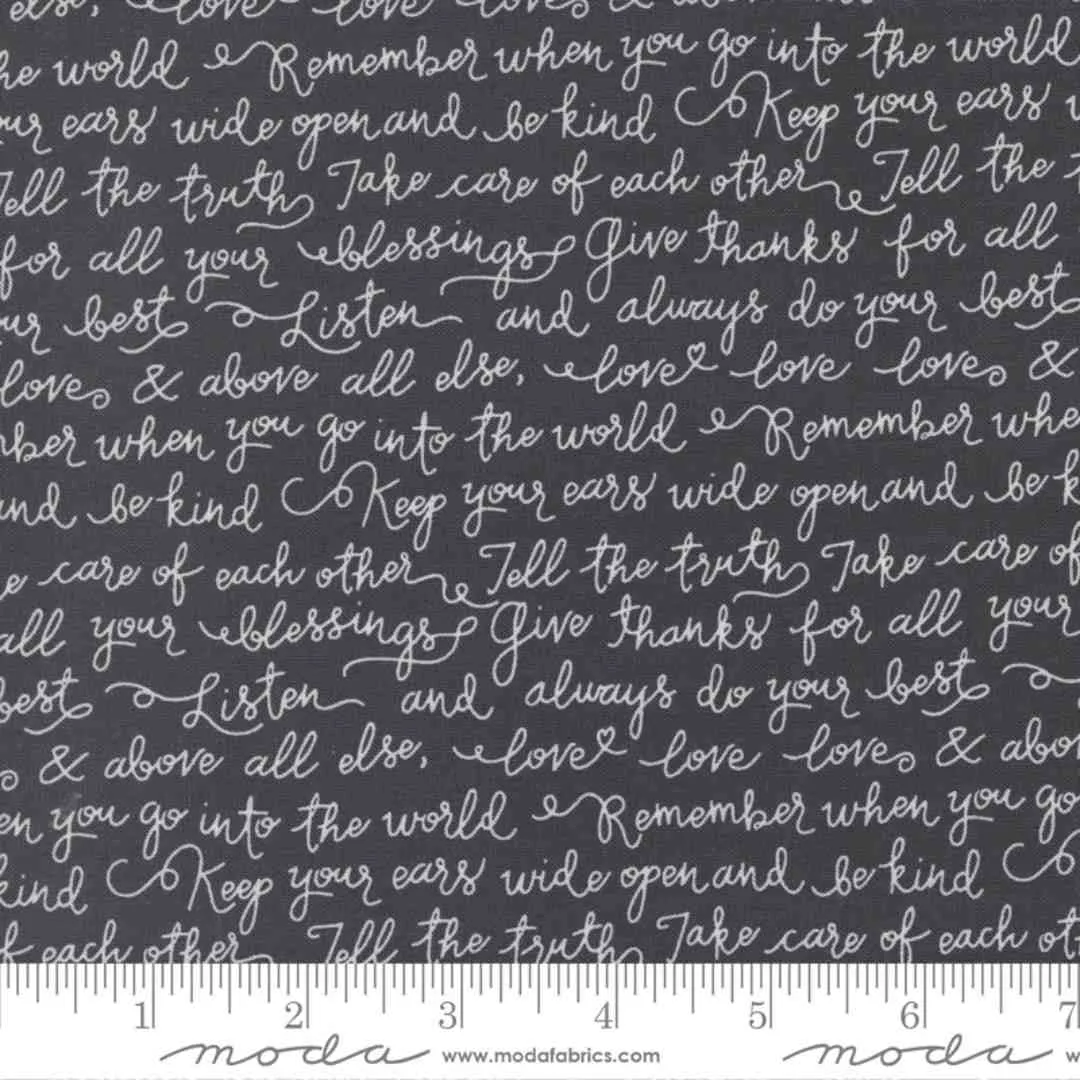 else, love love loves & above all
he world Remember when you go into the world
our ears wide open and be kind Keep your ears
Tell the truth Take care of each other Tell the
for all your blessings Give thanks for all
ur best Listen and always do your best
love & above all else, love love love &
mber when you go into the world Remember whe
and be kind Keep your ears wide open and be k
e care of each other Tell the truth Take care of
all your blessings Give thanks for all your
best Listen and always do your best
& above all else, love love love & abov
en you go into the world Remember when you go
kind Keep your ears wide open and be kind
f each other Tell the truth Take care of each ot
1 2 3 4 5 6 7
moda www.modafabrics.com moda w